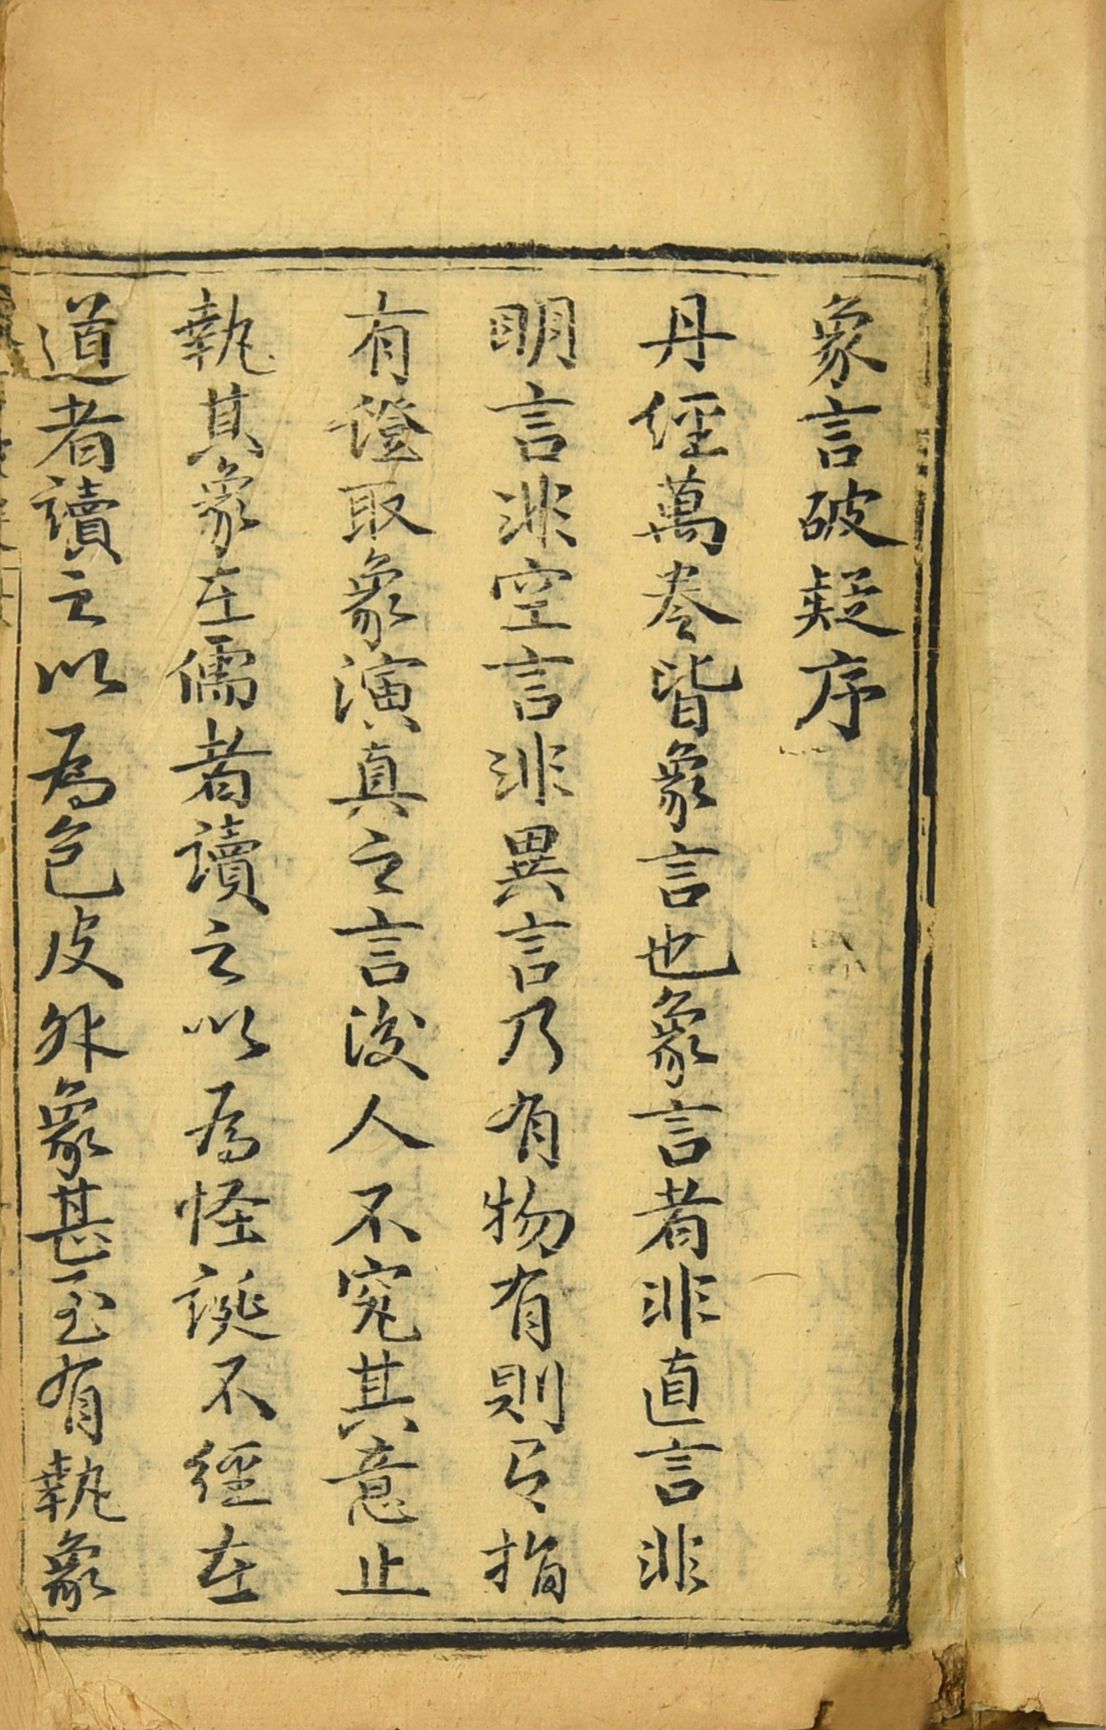 象言破疑序
丹經萬卷皆象言也象言者非直言非
明言非空言非異言乃有物有則有指
有證取象演真之言後人不究其意止
執其象在儒者讀之以為怪誕不經在
道者讀之以為包皮外象甚至有執象